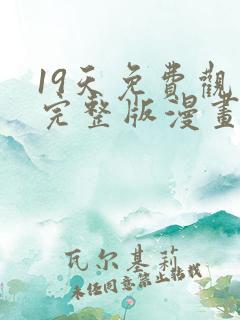 19天免費觀
完整版漫畫
瓦尔基莉
未经同意禁止转载